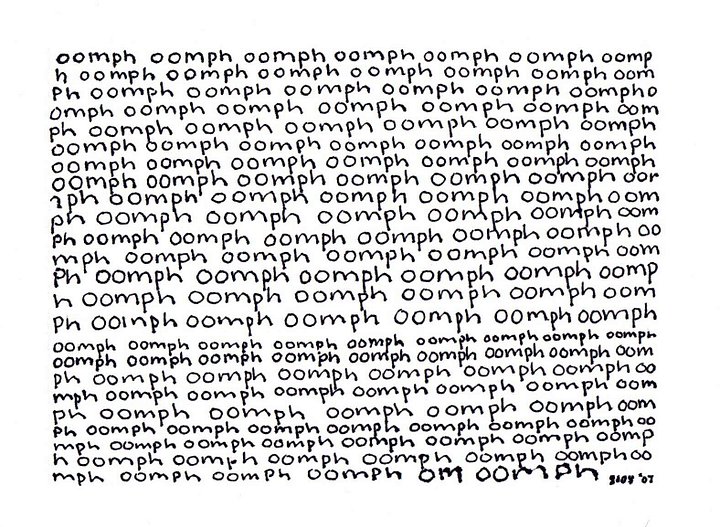 oomph oomph oomph oomph oomph oomph oomp
h oomph oomph oomph oomph oomph oomph oom
ph oomph oomph oomph oomph oomph oompho
omph oomph oomph oomph oomph oomph oom
ph oomph oomph oomph oomph oomph oomph
oomph oomph oomph oomph oomph oomph oomph
oomph oomph oomph oomph oomph oomph oomph
oomph oomph oomph oomph oomph oomph oor
nph oomph oomph oomph oomph oomph oom
ph oomph oomph oomph oomph oomph oom
ph oomph oomph oomph oomph oomph oomph oo
mph oomph oomph oomph oomph oomph oom
ph oomph oomph oomph oomph oomph oomp
h oomph oomph oomph oomph oomph oom
ph oomph oomph oomph oomph oomph oomph
oomph oomph oomph oomph oomph oomph oomph oomph oomph
oomph oomph oomph oomph oomph oomph oomph oomph oom
ph oomph oomph oomph oomph oomph oomph oo
mph oomph oomph oomph oomph oomph oomph oom
ph oomph oomph oomph oomph oomph oom
ph oomph oomph oomph oomph oomph oomph oomph oo
mph oomph oomph oomph oomph oomph oomph oomp
h oomph oomph oomph oomph oomph oomph oomph oo
mph oomph oomph oomph om oomph